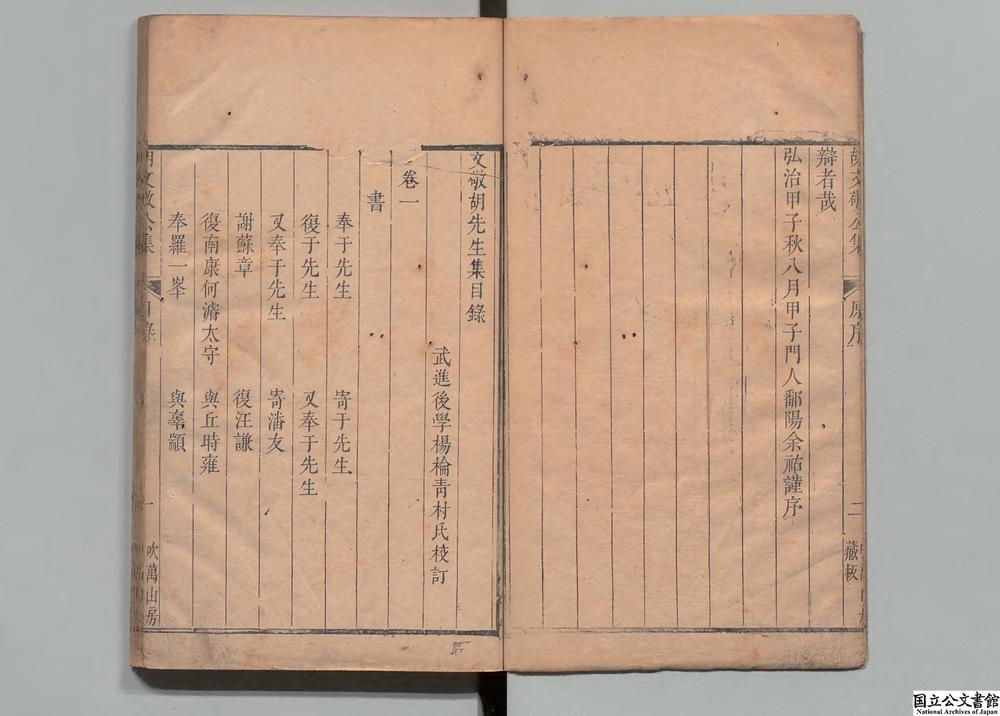 辯者哉
弘治甲子秋八月甲子門人鄱陽余祐謹序
原序
二
藏板
文敬胡先生集目錄
武進後學楊棆青村氏校訂
卷一
書
奉于先生 寄于先生
復于先生 又奉于先生
又奉于先生 寄潘友
謝蘇章 復汪謙
復南康何濬太守 與丘時雍
奉羅一峯
胡文敬公集
目錄
一
吹萬山房
国立公文書館
National Archives of Japan